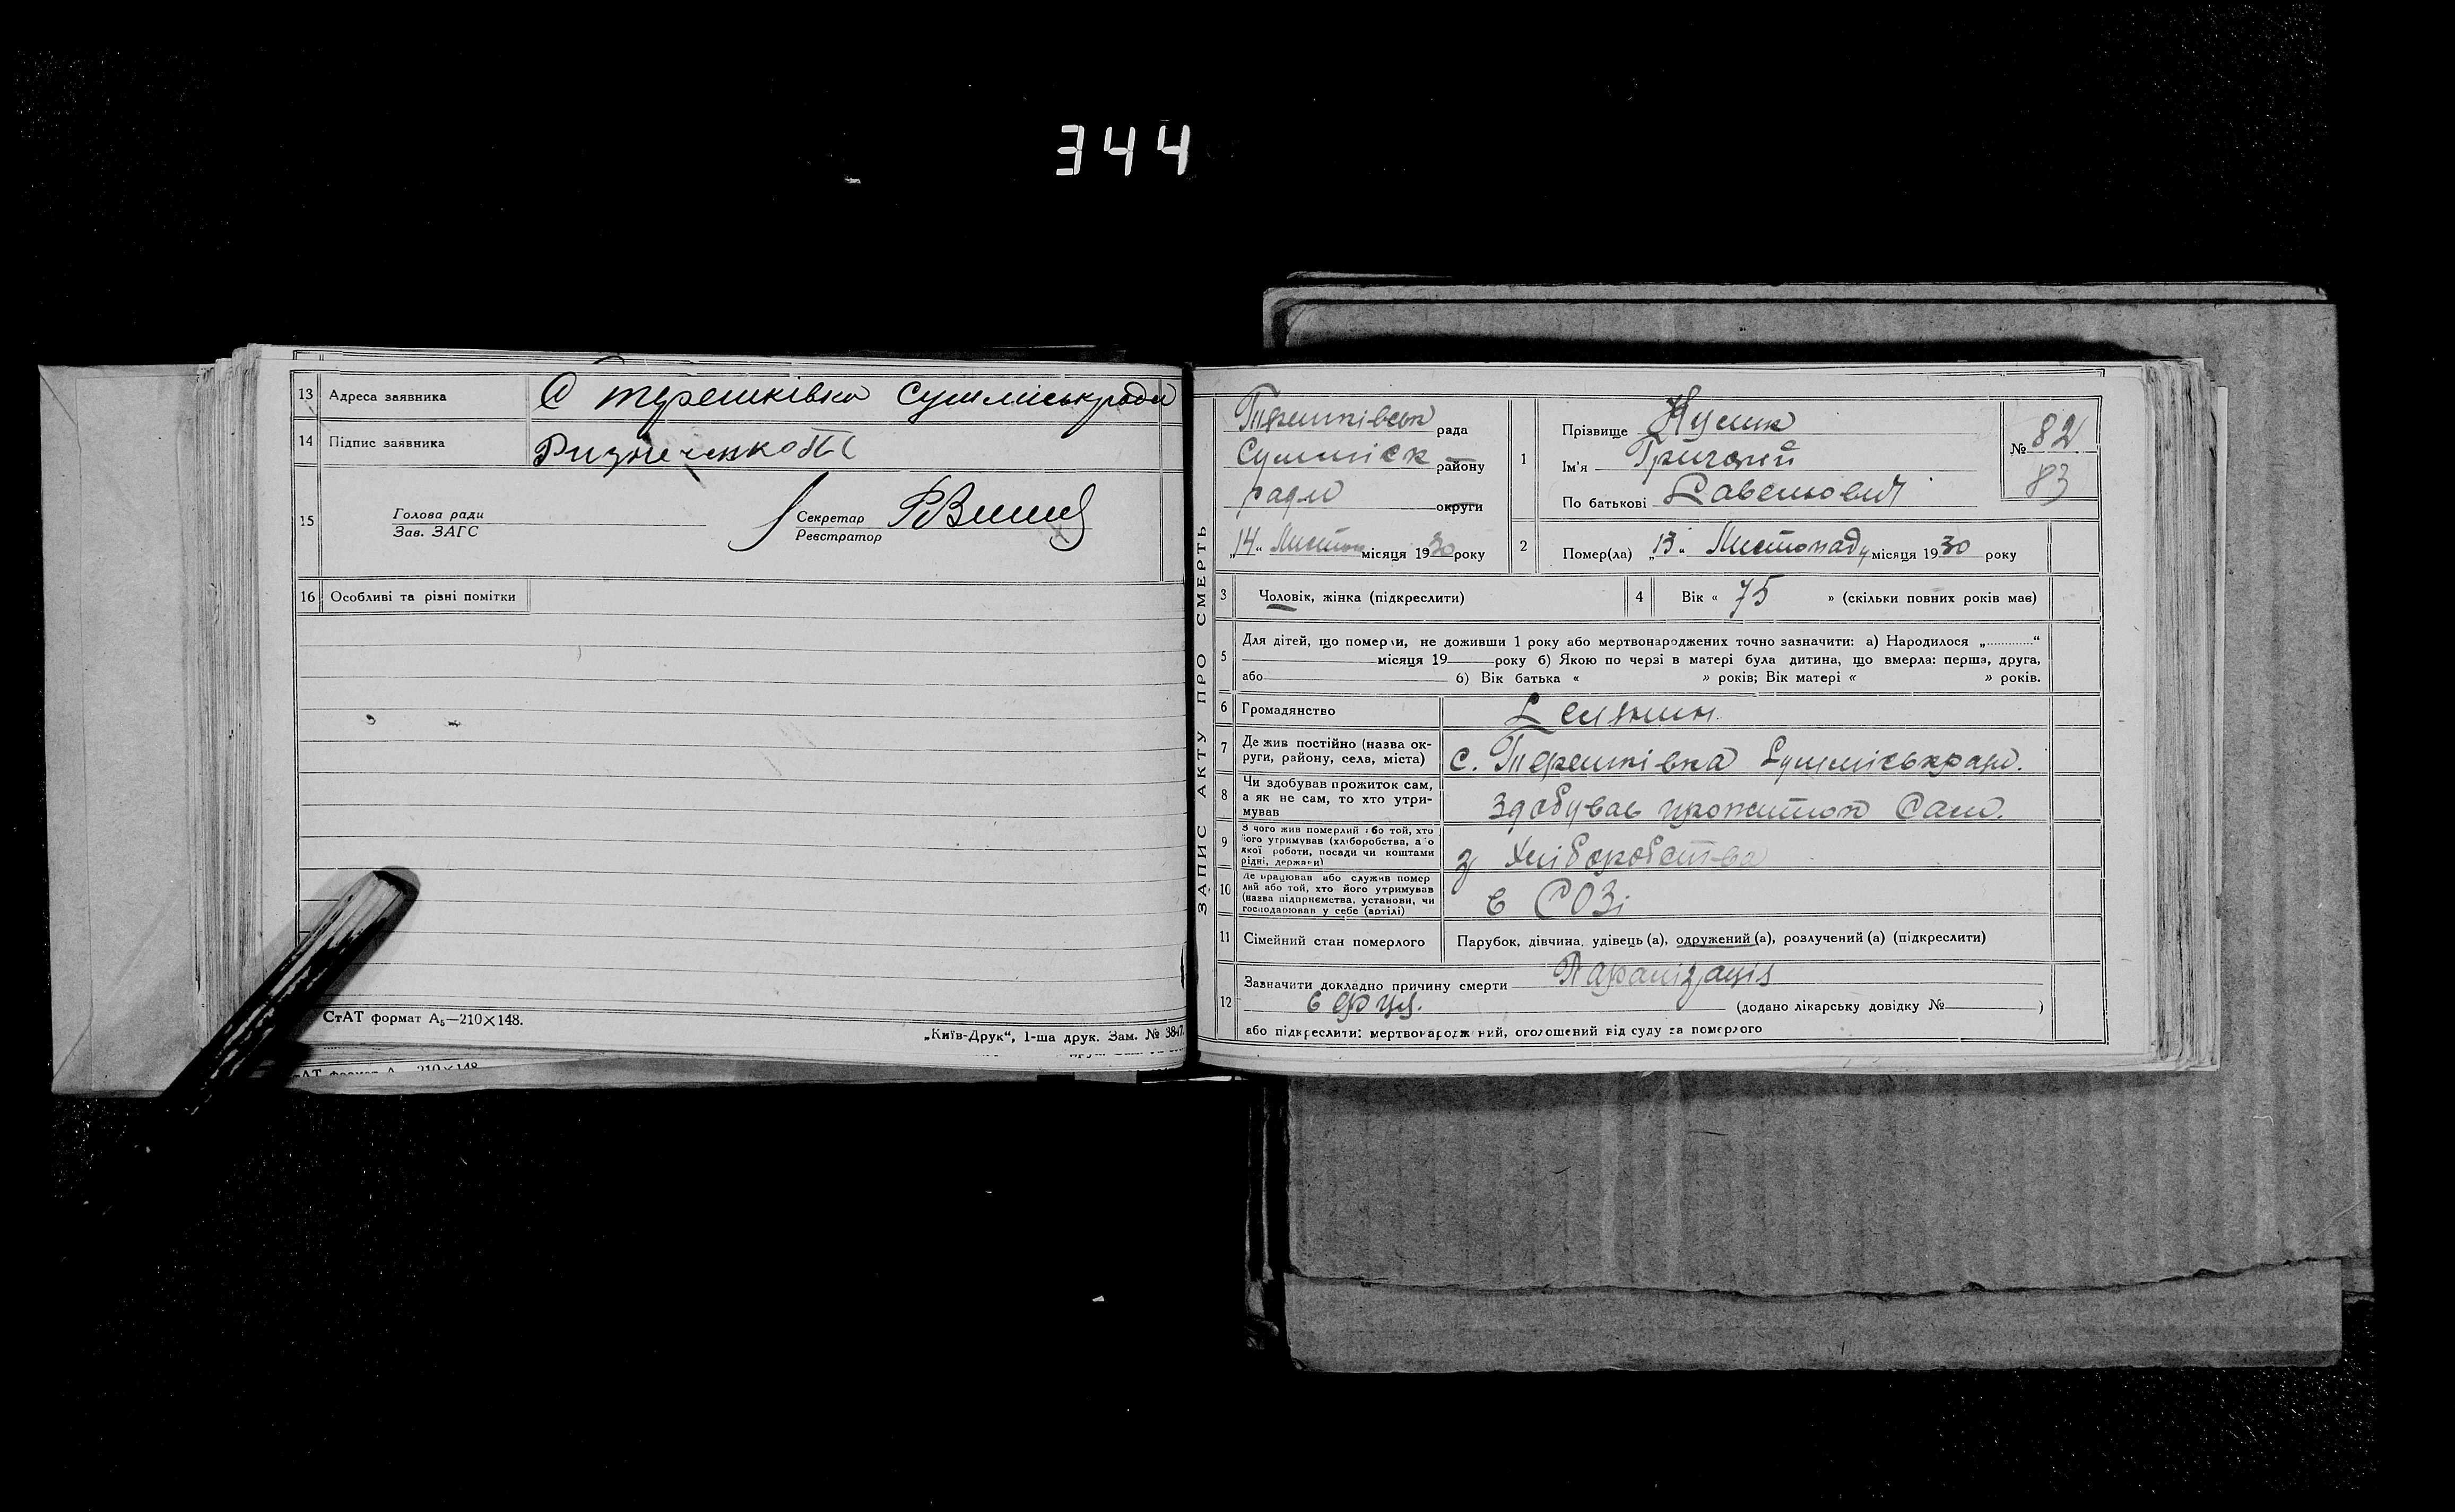 344
13 Адреса заявника С терешківка Сумміськради
14 Підпис заявника
15 Голова ради
Зав. ЗАГС
Секретар
Реєстратор
16 Особливі та різні помітки
СтАТ формат А₅—210×148.
„Київ-Друк“, 1-ша друк. Зам. №
ЗАПИС АКТУ ПРО СМЕРТЬ
Терешківськ рада
Сумміськ району
ради округи
„14“ Листоп місяця 1930 року
№ 82
83
1 Прізвище
Ім'я Григорій
По батькові Савелієвич
2 Помер(ла) „13“ Листопаду місяця 1930 року
3 Чоловік, жінка (підкреслити)
4 Вік « 75 » (скільки повних років має)
5 Для дітей, що померли, не доживши 1 року або мертвонароджених точно зазначити: а) Народилося „............“
місяця 19 року б) Якою по черзі в матері була дитина, що вмерла: перша, друга,
або б) Вік батька « » років; Вік матері « » років.
6 Громадянство
7 Де жив постійно (назва округи, району, села, міста) с. Терешківка Сумміськрад.
8 Чи здобував прожиток сам, а як не сам, то хто утримував здобував прожиток Сам.
9 З чого жив померлий або той, хто його утримував (хліборобства, або якої роботи, посади чи коштами рідні, держави) з Хліборобства
10 Де працював або служив померлий або той, хто його утримував (назва підприємства, установи, чи господарював у себе (артілі) в СОЗі
11 Сімейний стан померлого Парубок, дівчина, удівець (а), одружений (а), розлучений (а) (підкреслити)
12 Зазначити докладно причину смерти Паралізація
серця. (додано лікарську довідку № )
або підкреслити: мертвонароджений, оголошений від суду за померлого